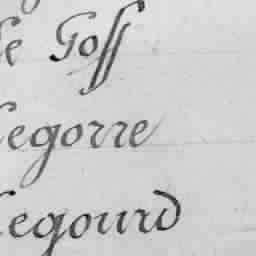 le Goff
legorre
legourd